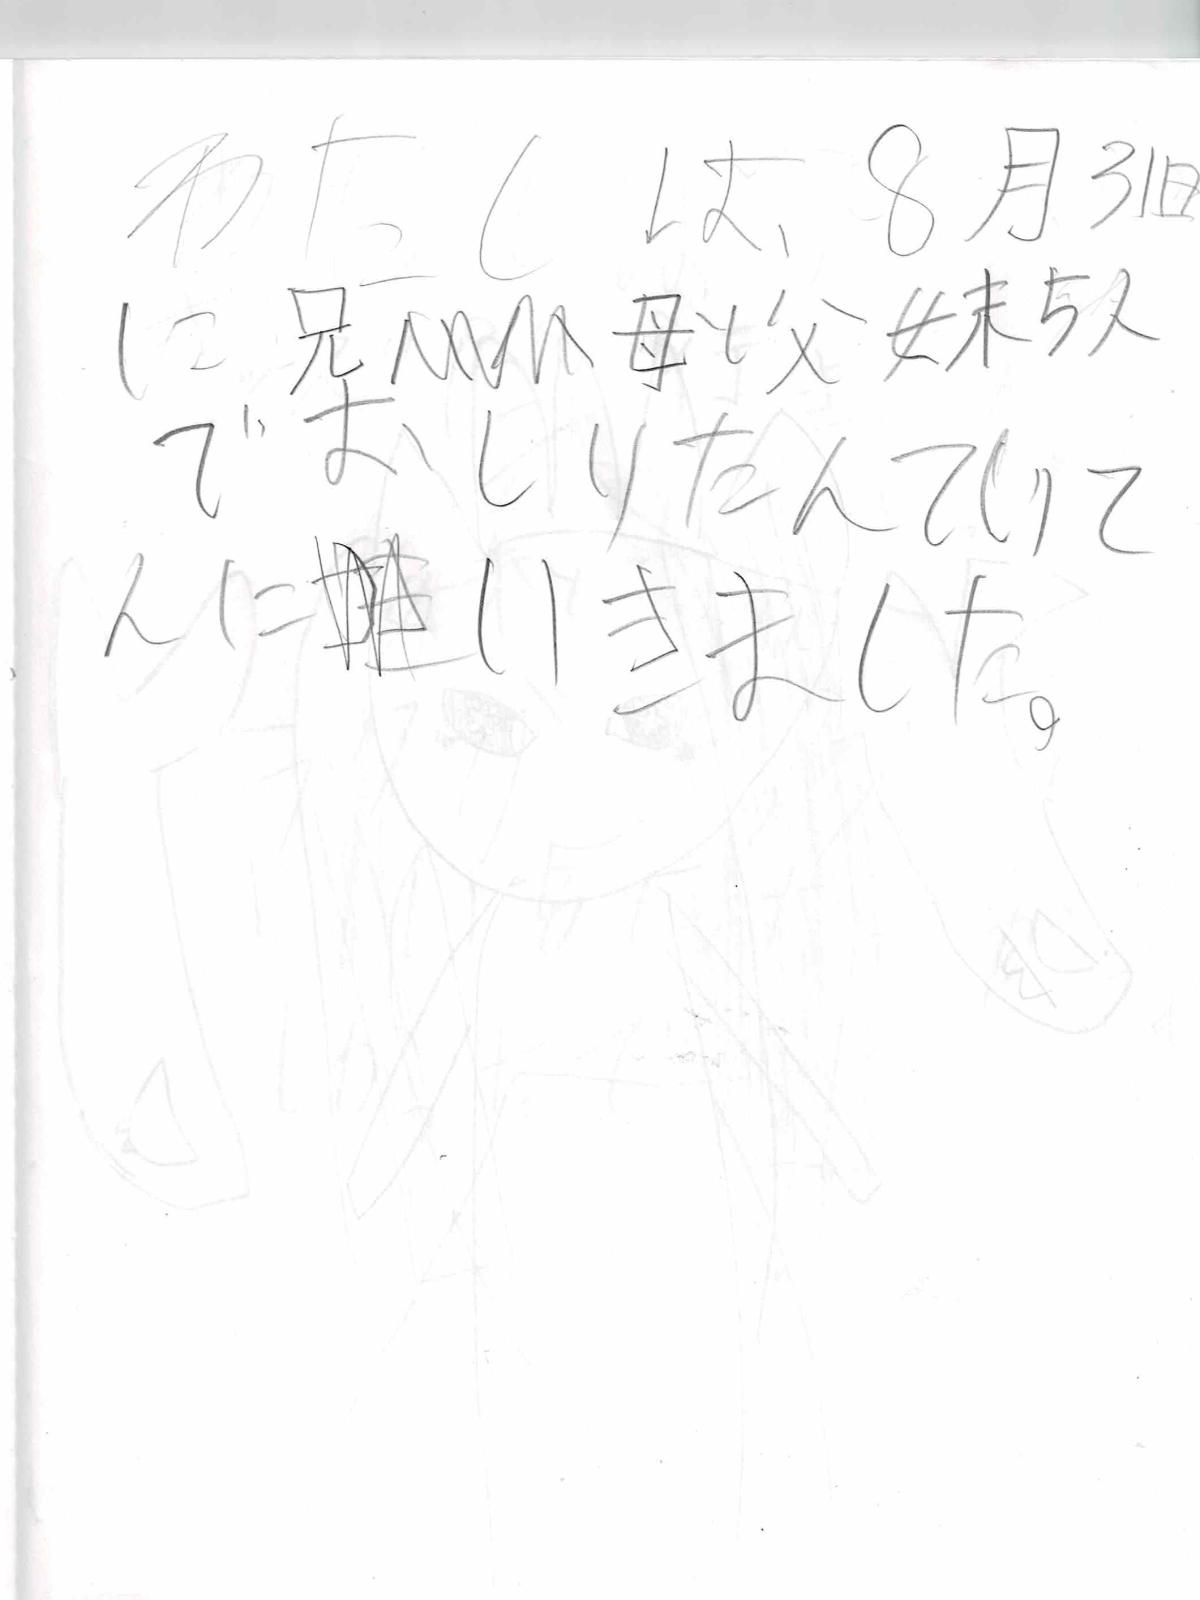 わたしは、8月31日
に兄母と父妹5人
でおしりたんていて
んにいきました。